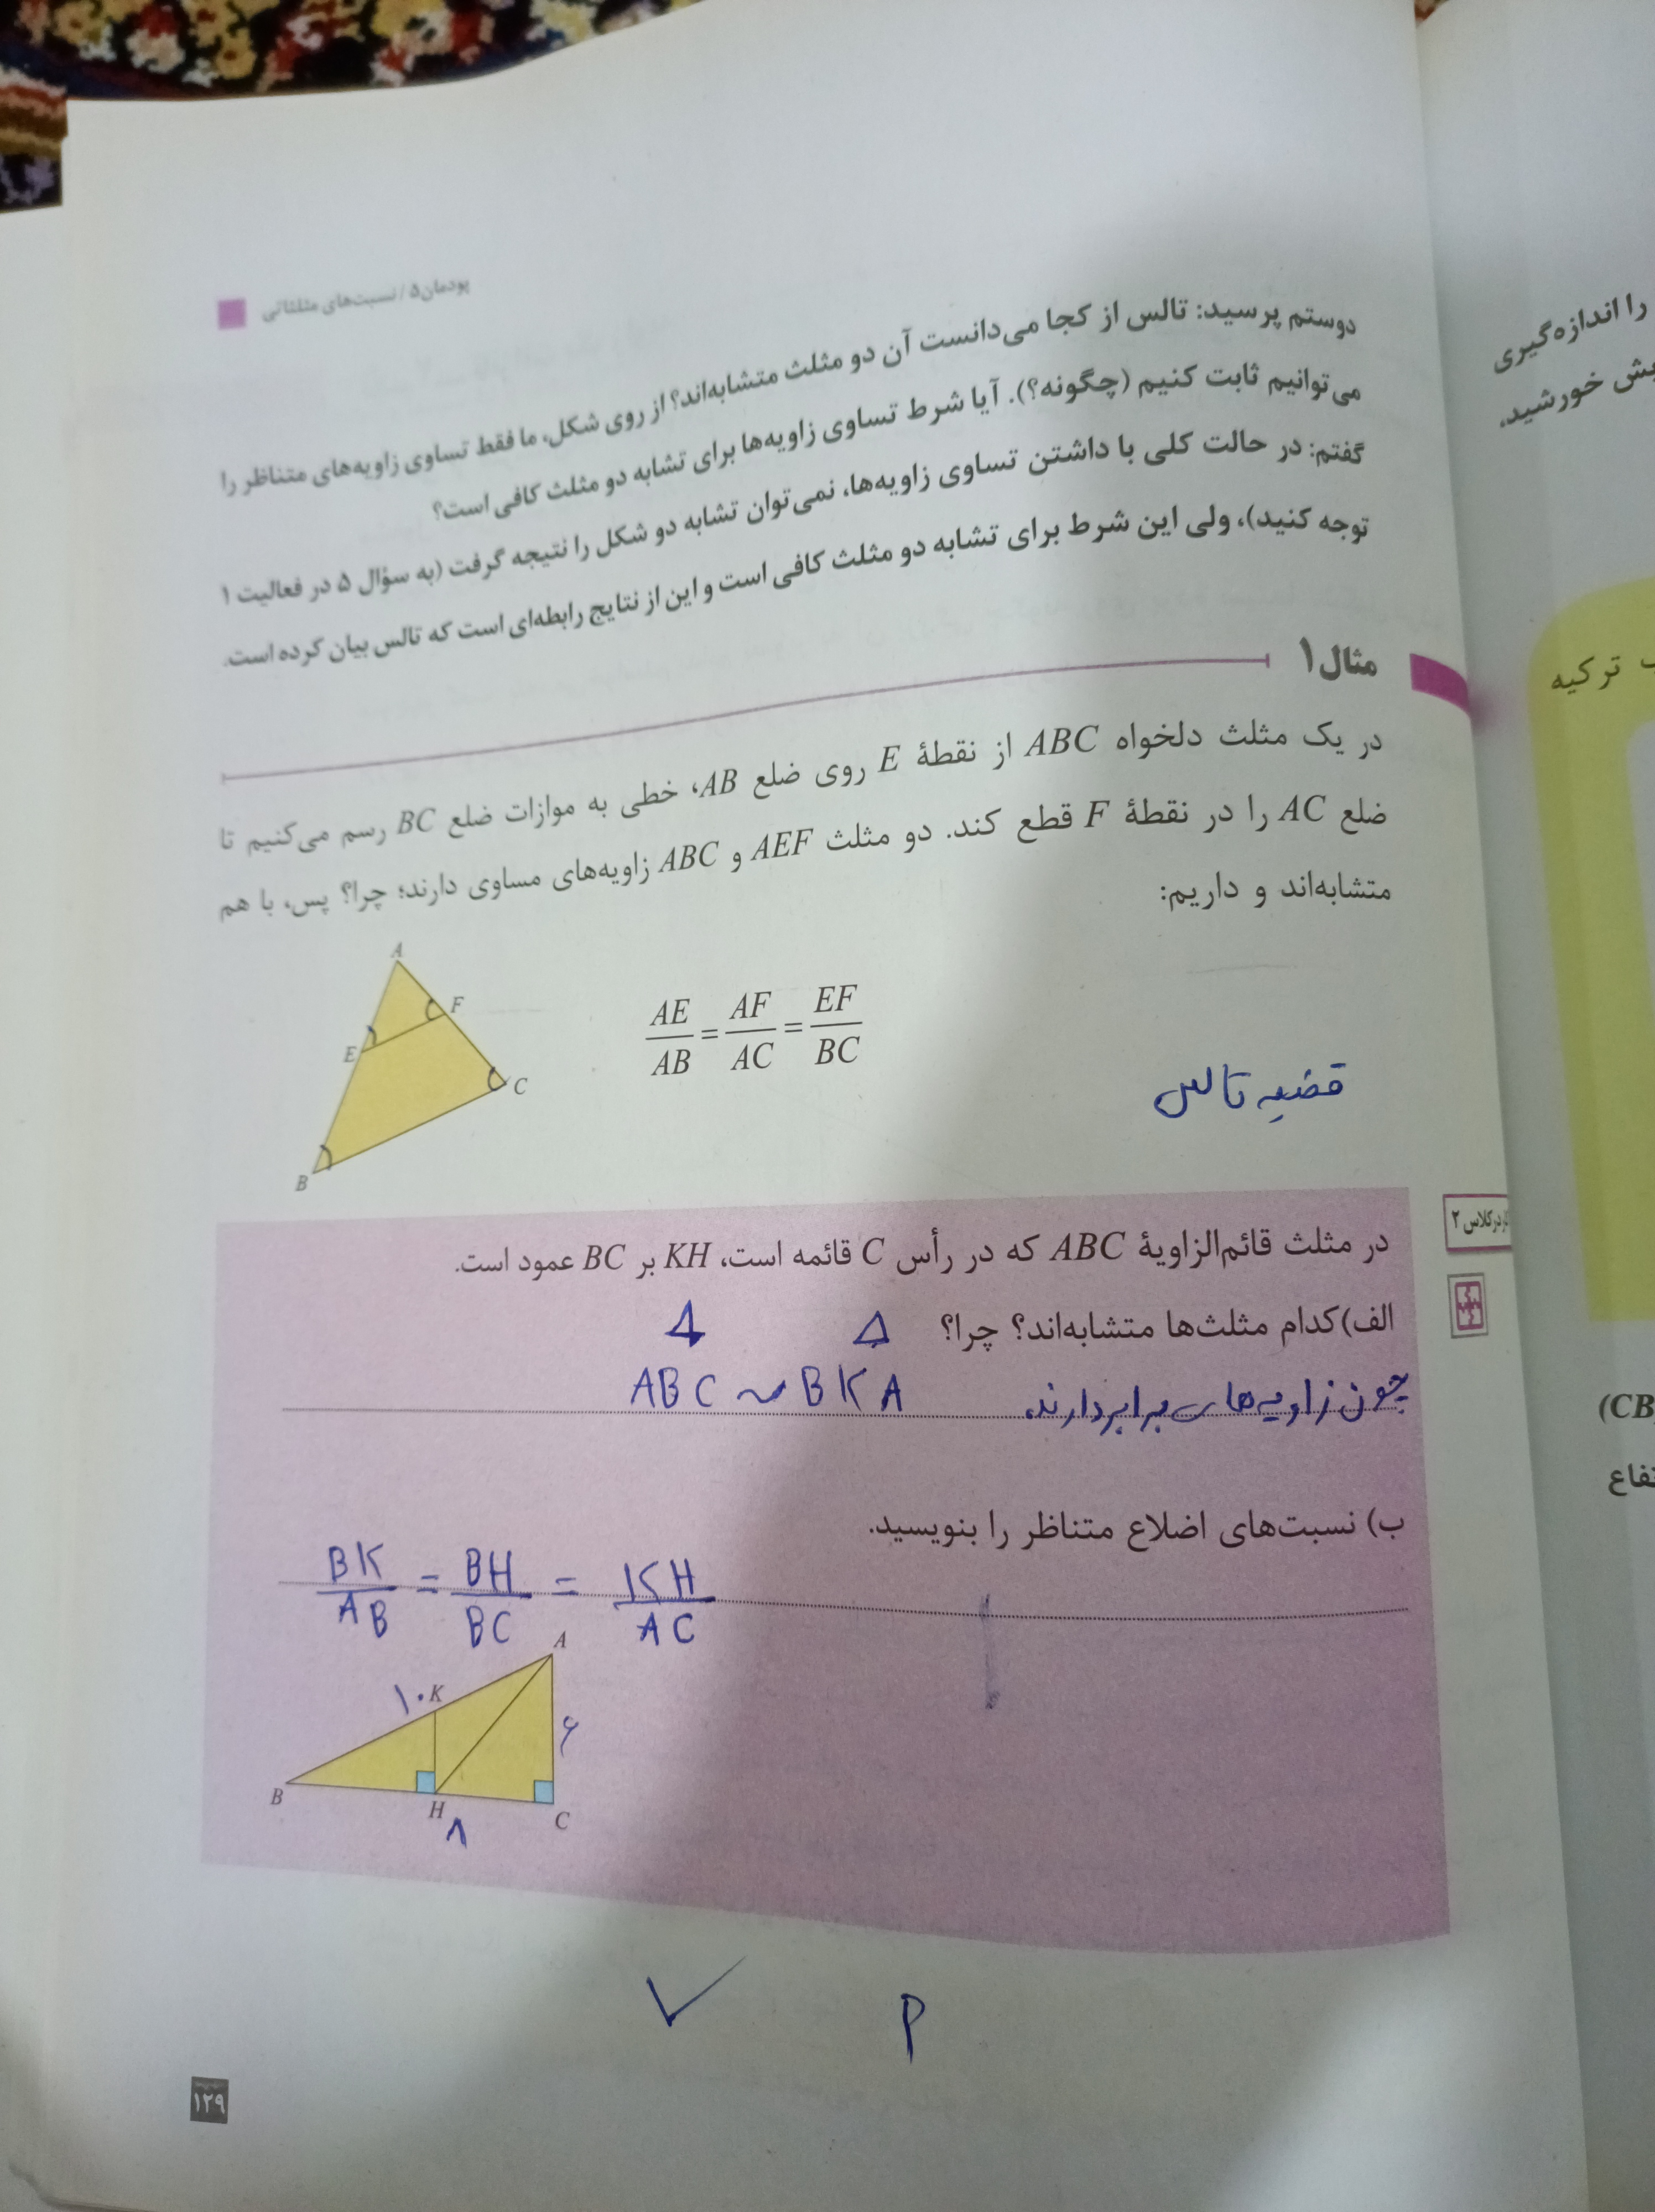 پودمان۵ / نسبت‌های مثلثاتی
دوستم پرسید: تالس از کجا می‌دانست آن دو مثلث متشابه‌اند؟ از روی شکل، ما فقط تساوی زاویه‌های متناظر را
می‌توانیم ثابت کنیم (چگونه؟). آیا شرط تساوی زاویه‌ها برای تشابه دو مثلث کافی است؟
گفتم: در حالت کلی با داشتن تساوی زاویه‌ها، نمی‌توان تشابه دو شکل را نتیجه گرفت (به سؤال ۵ در فعالیت ۱
توجه کنید)، ولی این شرط برای تشابه دو مثلث کافی است و این از نتایج رابطه‌ای است که تالس بیان کرده است.
مثال ۱
در یک مثلث دلخواه ABC از نقطهٔ E روی ضلع AB، خطی به موازات ضلع BC رسم می‌کنیم تا
ضلع AC را در نقطهٔ F قطع کند. دو مثلث AEF و ABC زاویه‌های مساوی دارند؛ چرا؟ پس، با هم
متشابه‌اند و داریم:
AE/AB = AF/AC = EF/BC
A
F
E
C
B
قضیه تالس
در کلاس ۲
در مثلث قائم‌الزاویهٔ ABC که در رأس C قائمه است، KH بر BC عمود است.
الف) کدام مثلث‌ها متشابه‌اند؟ چرا؟
چون زاویه‌های برابر دارند. ABC ~ BKA
ب) نسبت‌های اضلاع متناظر را بنویسید.
BK/AB = BH/BC = KH/AC
A
۱۰ K
۶
B
H
C
۸
P
۱۲۹
را اندازه‌گیری
خورشید،
ترکیه
(CB